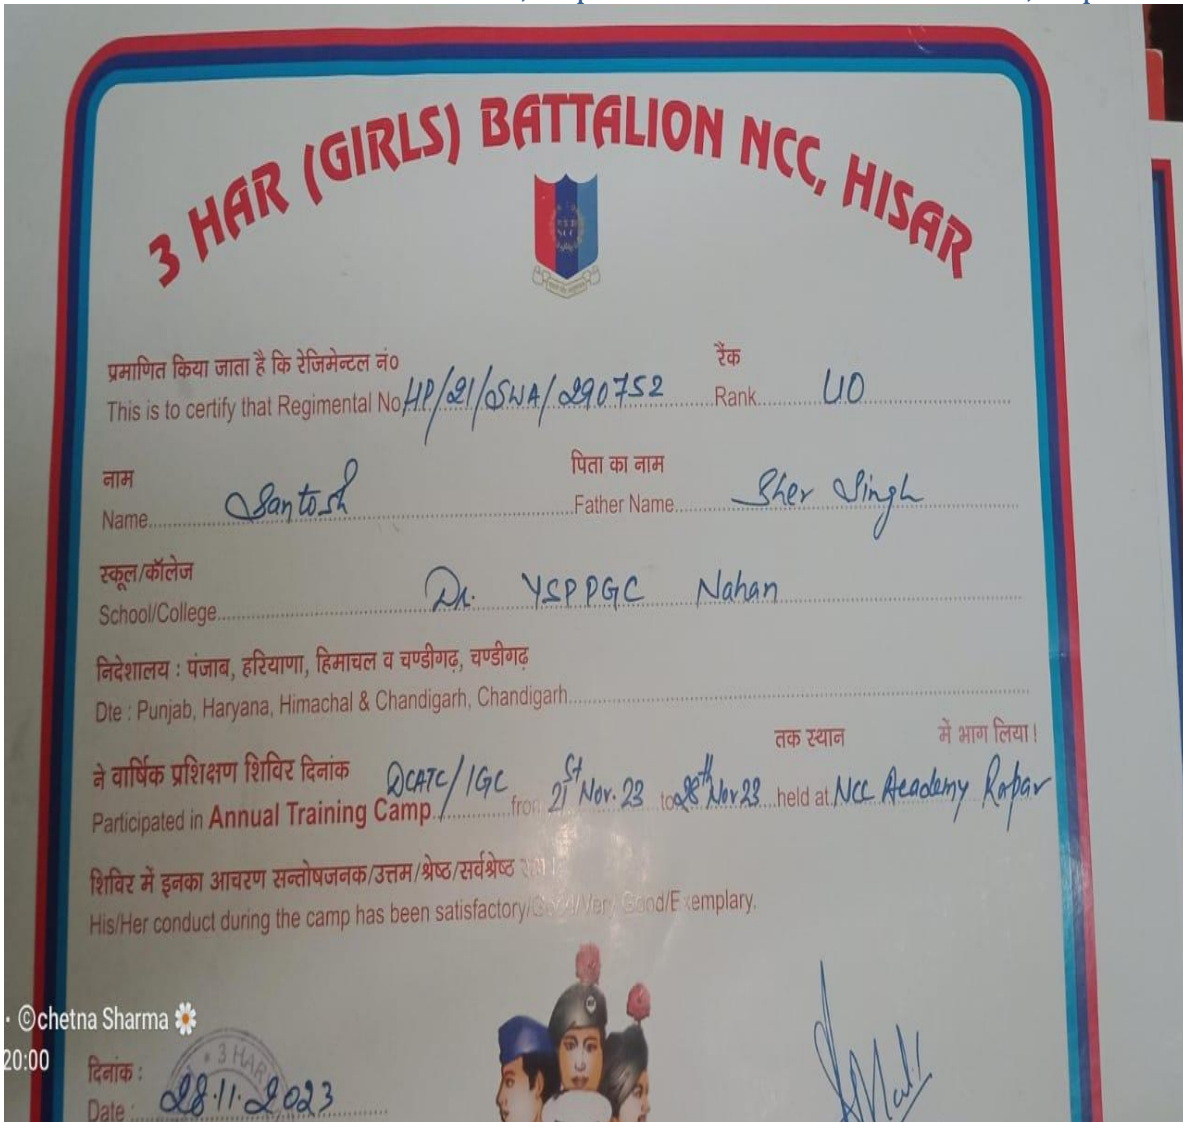 3 HAR (GIRLS) BATTALION NCC, HISAR
NCC
प्रमाणित किया जाता है कि रेजिमेन्टल नं०
रैंक
This is to certify that Regimental No HP/21/SWA/290752 Rank UO
नाम
पिता का नाम
Name Santosh Father Name Sher Singh
स्कूल/कॉलेज
School/College Dr. YSPPGC Nahan
निदेशालय : पंजाब, हरियाणा, हिमाचल व चण्डीगढ़, चण्डीगढ़
Dte : Punjab, Haryana, Himachal & Chandigarh, Chandigarh
तक स्थान में भाग लिया!
ने वार्षिक प्रशिक्षण शिविर दिनांक
Participated in Annual Training Camp DCATC/IGC from 21st Nov. 23 to 28th Nov 23 held at NCC Academy Ropar
शिविर में इनका आचरण सन्तोषजनक/उत्तम/श्रेष्ठ/सर्वश्रेष्ठ
His/Her conduct during the camp has been satisfactory/Good/Very Good/Exemplary.
©chetna Sharma
20:00
3 HAR
दिनांक :
Date : 28.11.2023